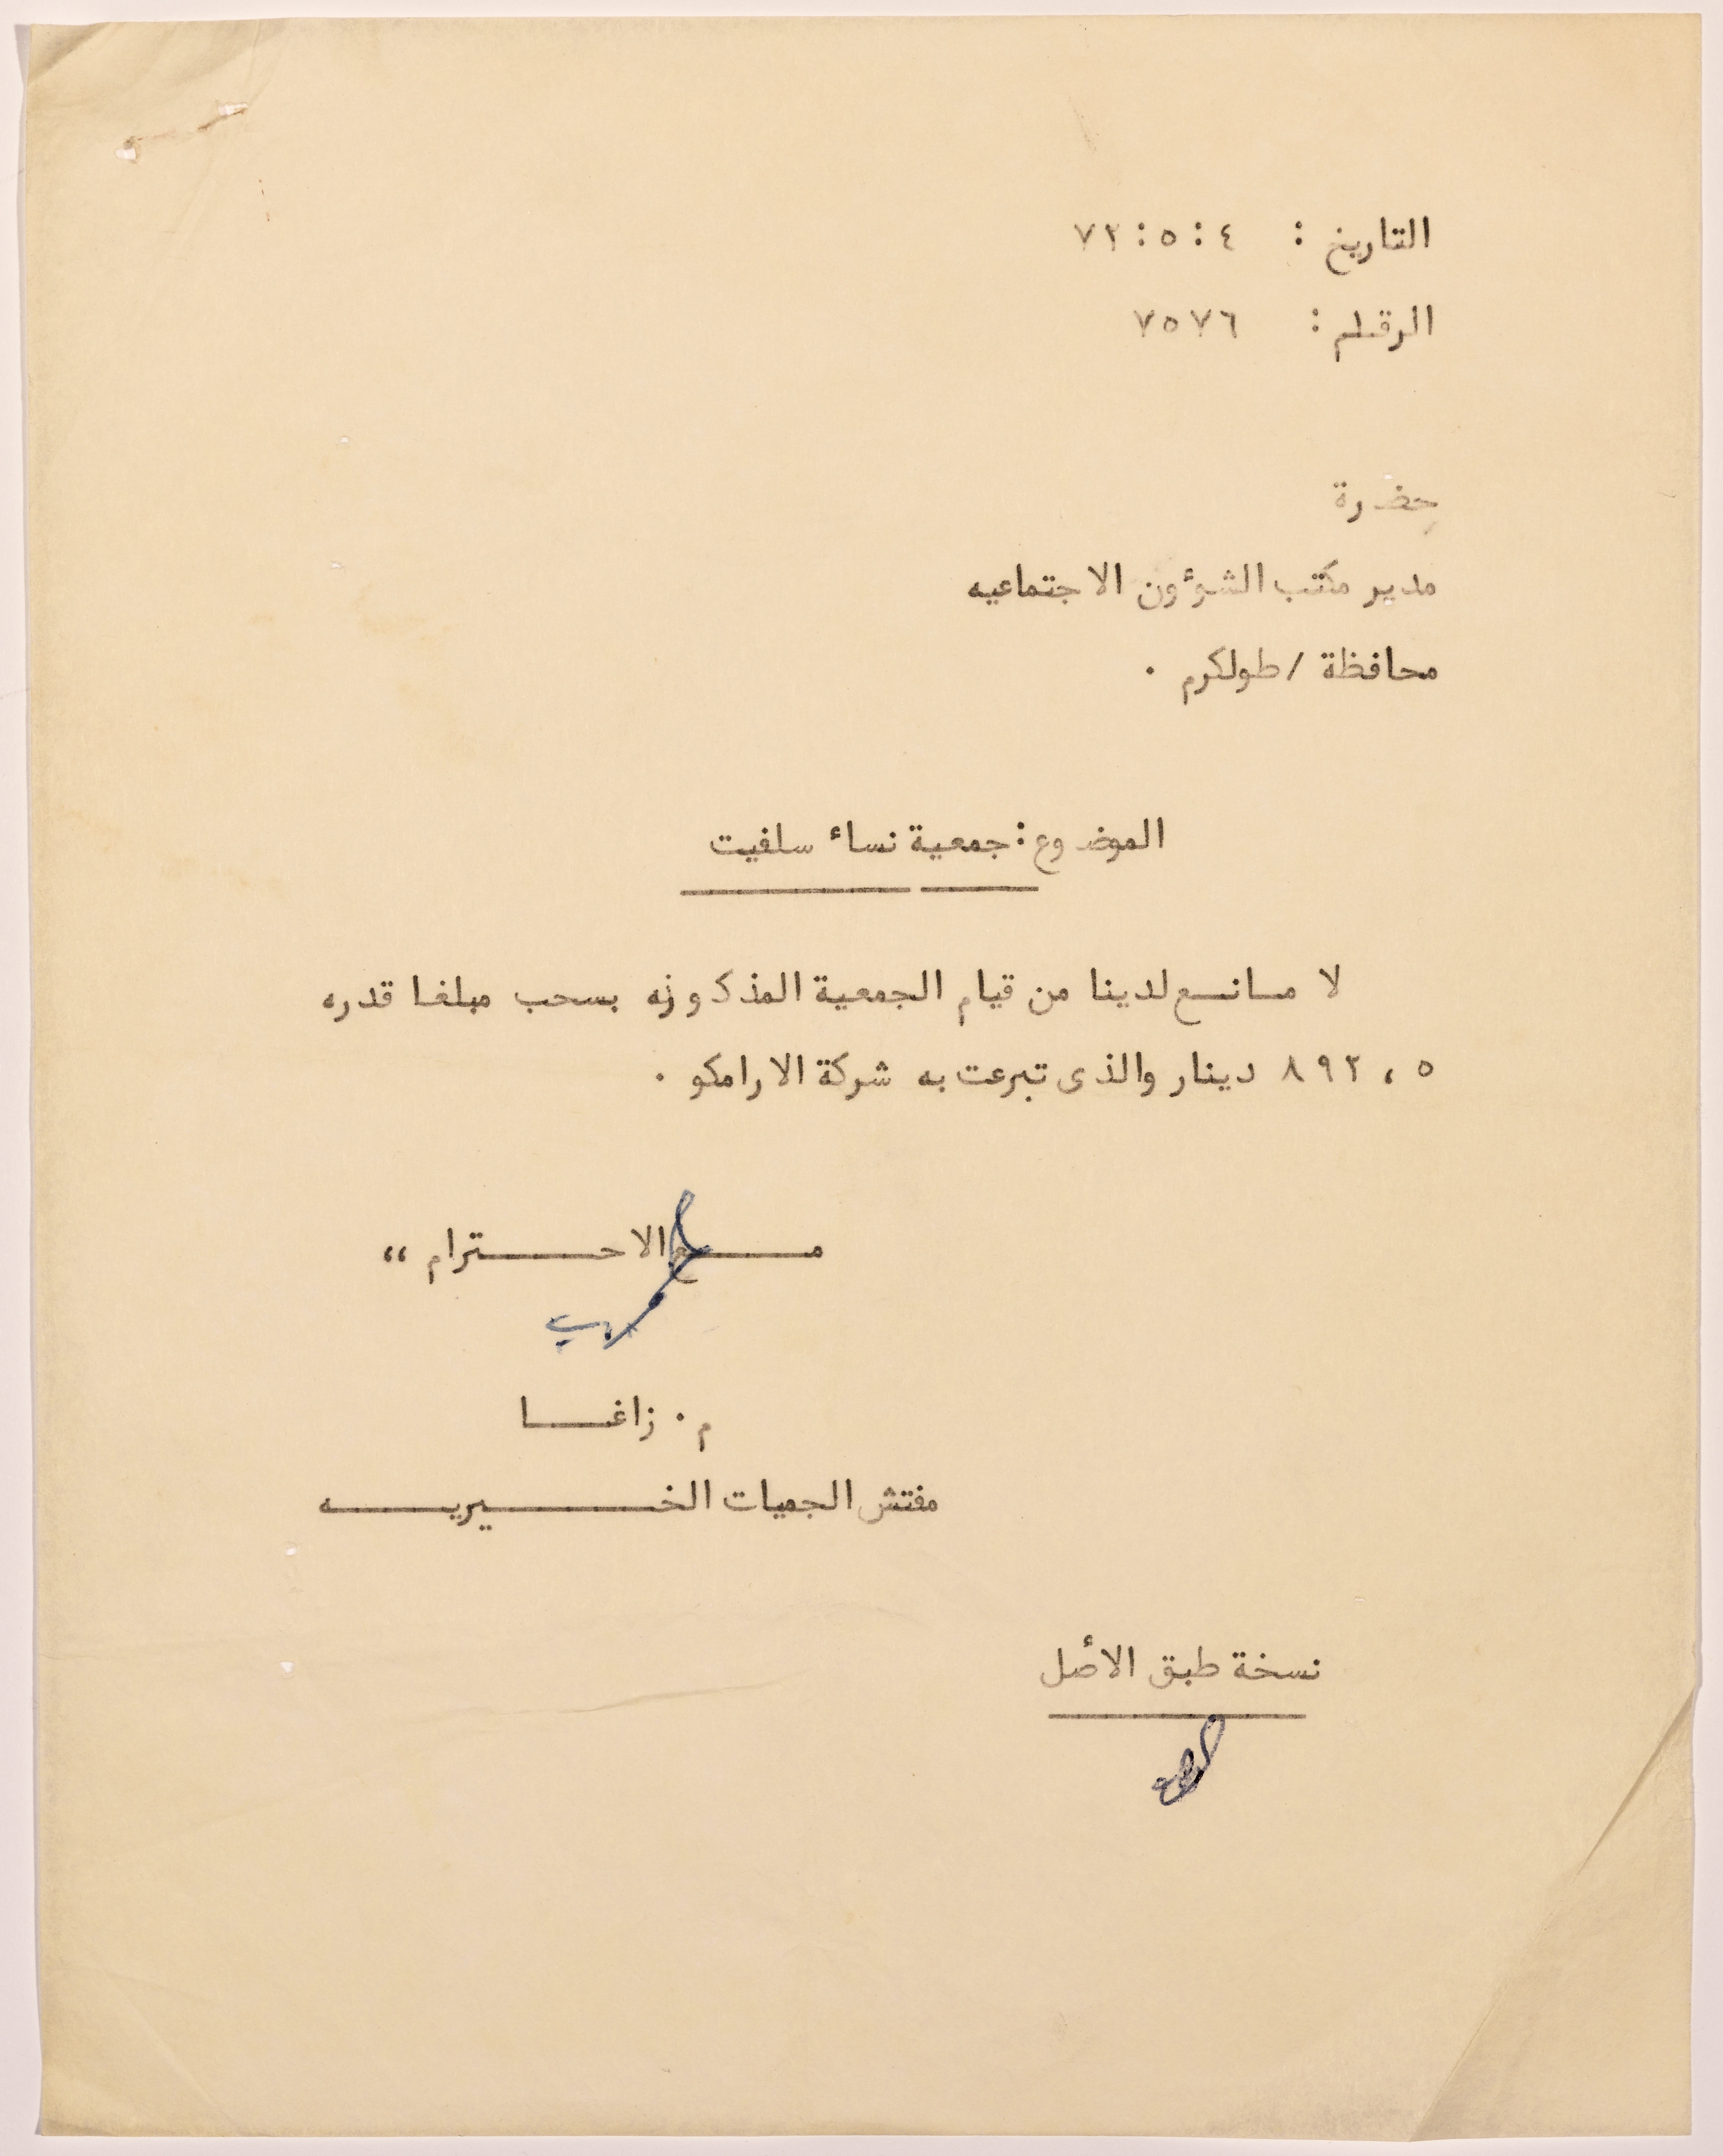 التاريخ : ٤ : ٥ : ٧٢
الرقلم : ٧٥٧٦
حضرة
مدير مكتب الشؤون الاجتماعيه
محافظة / طولكرم ٠
الموضوع : جمعية نساء سلفيت
لا مانع لدينا من قيام الجمعية المذكوزه بسحب مبلغا قدره
٨٩٢،٥ دينار والذى تبرعت به شركة الارامكو ٠
مع الاحترام ،،
م ٠ زاغا
مفتش الجميات الخيريه
نسخة طبق الأصل